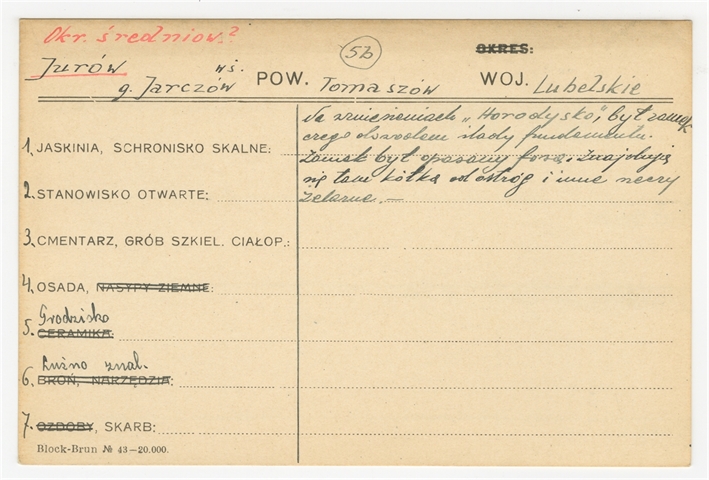 Okr. średniow.?
5b
OKRES:
Jurów wś.
g. Jarczów POW. Tomaszów WOJ. Lubelskie
Na wzniesieniach „Horodysko", był zamek
czego dowodem ślady fundamentu.
Zamek był opasany fosą. Znajdują
się tam kółka od ostróg i inne rzeczy
żelazne. —
1. JASKINIA, SCHRONISKO SKALNE:
2. STANOWISKO OTWARTE:
3. CMENTARZ, GRÓB SZKIEL. CIAŁOP.:
4. OSADA, NASYPY ZIEMNE:
Grodzisko
5. CERAMIKA:
Luźno znal.
6. BROŃ, NARZĘDZIA:
7. OZDOBY, SKARB:
Block-Brun № 43—20.000.